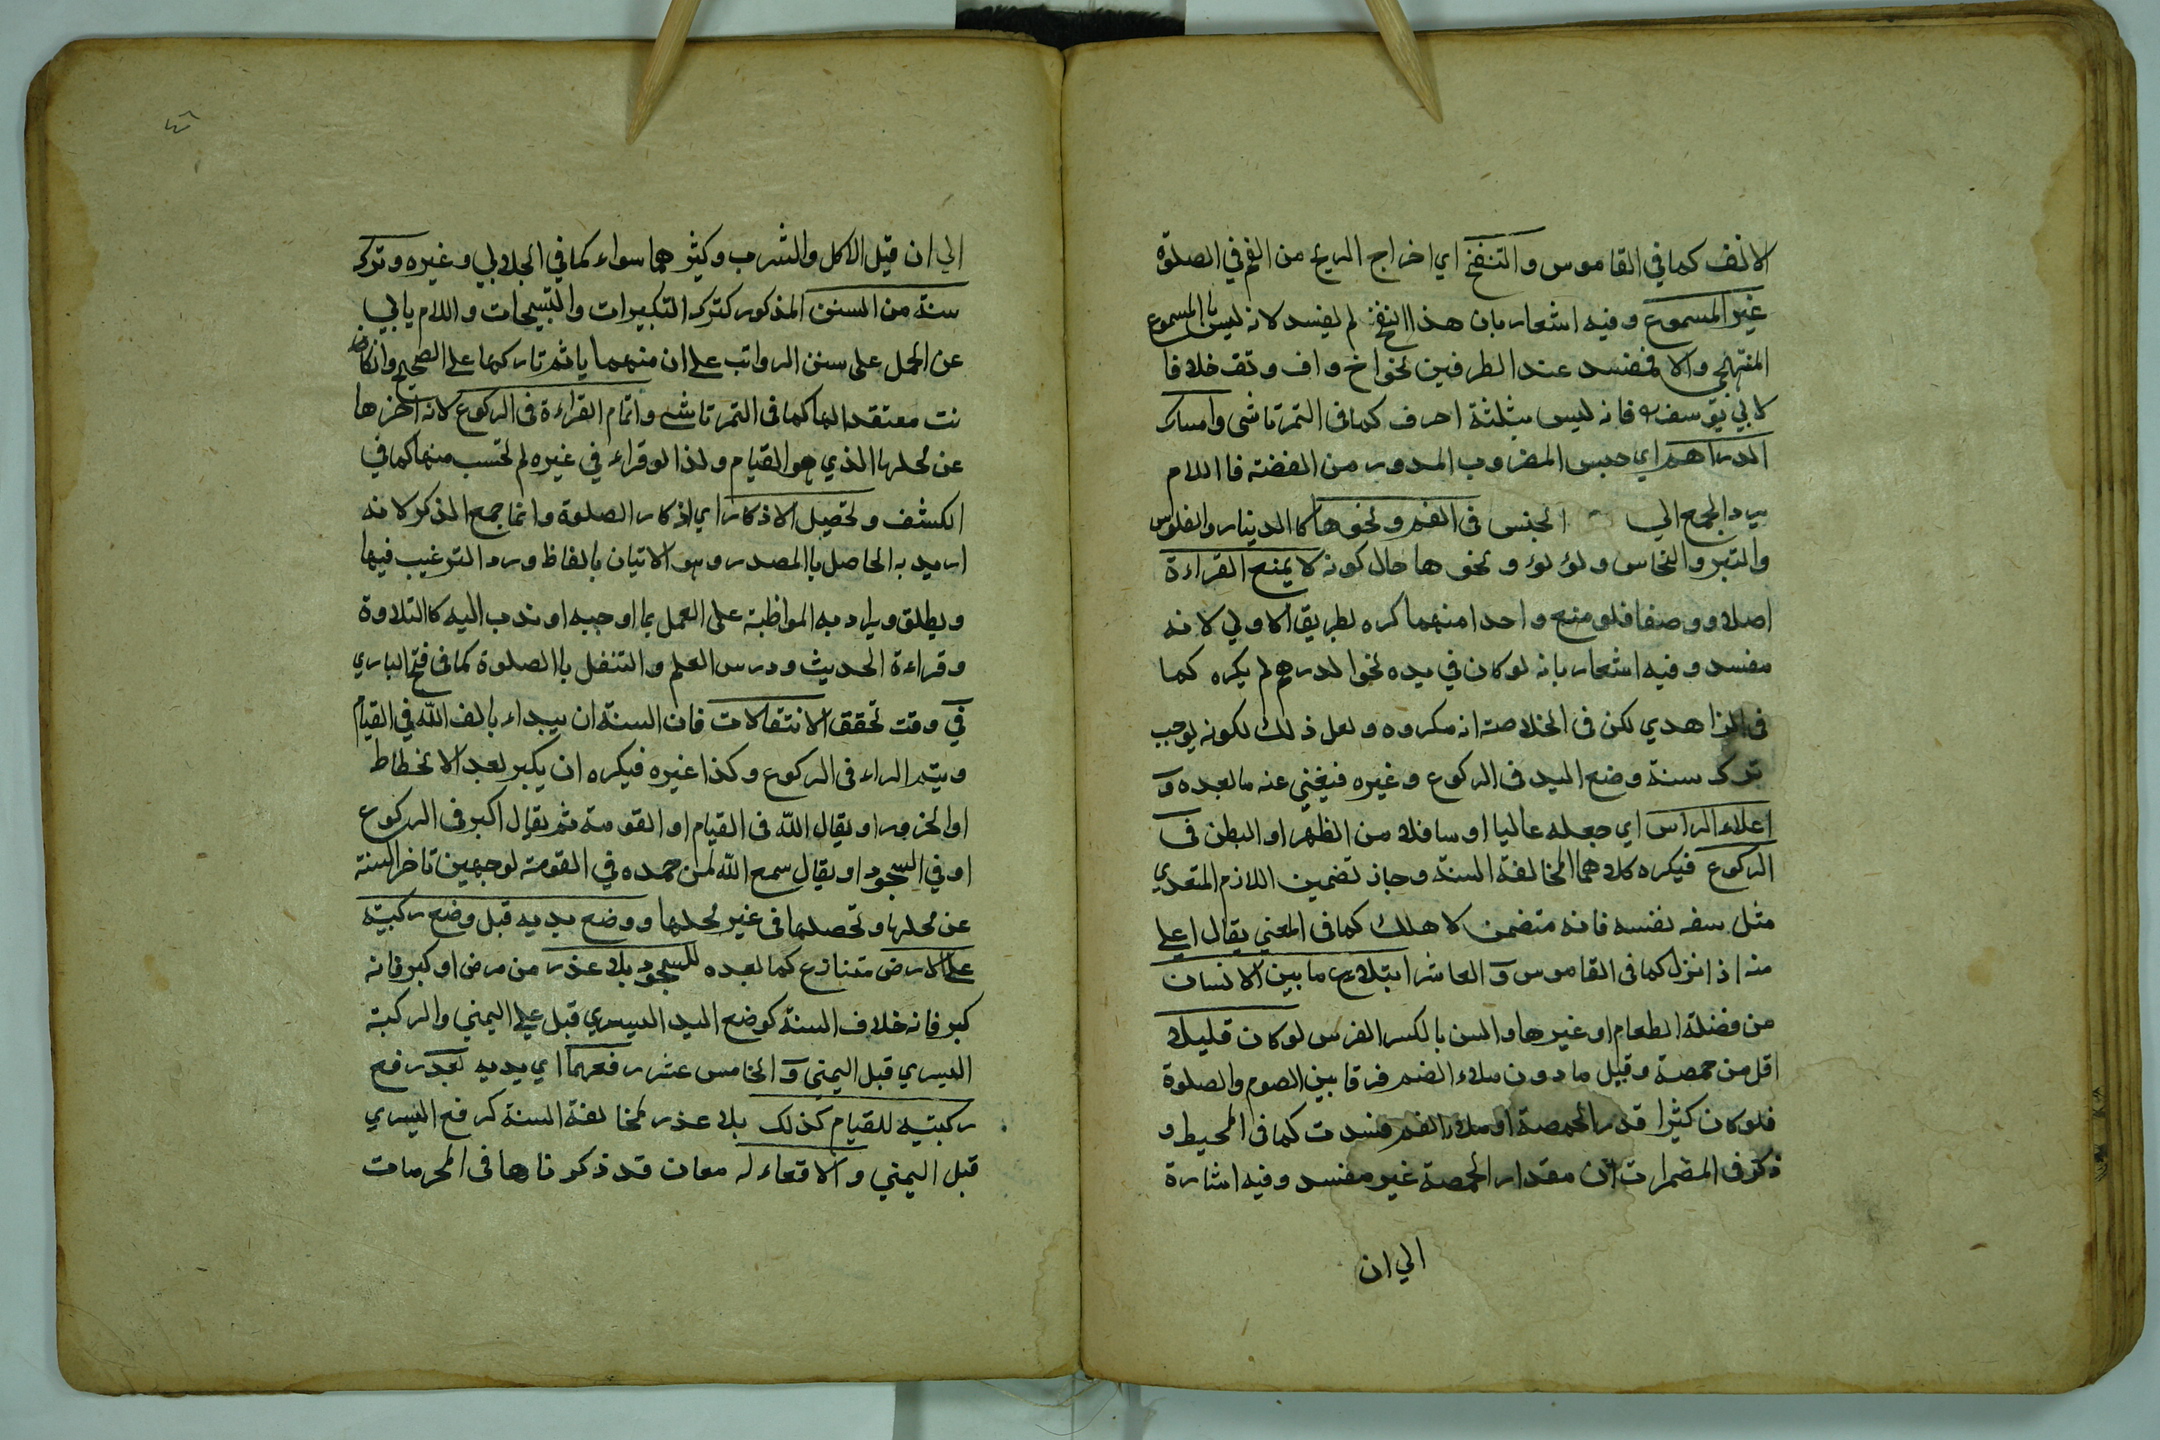 الانف كما في القاموس والتنفخ اي اخراج الريح من الفم في الصلوة
غير المسموع وفيه اشعار بان هذا النفخ لم يفسد لانه ليس بالمسموع
المتهجي والا فمفسد عند الطرفين نحو اخ واف وتف خلافا
لابي يوسف فانه ليس بثلثة احرف كما في التمرتاشي وامساك
الدراهم اي حبس المضروب المدور من الفضة فااللام
يرد الجمع الي الجنس في الفم ونحوها كالدينار والفلوس
والتبر والنحاس ولؤلؤ ونحوها حال كونه لا يمنع القراءة
اصلا ووصفا فلو منع واحدا منهما كره بطريق الاولي لانه
مفسد وفيه اشعار بانه لو كان في يده نحو الدرهم لم يكره كما
في الزاهدي لكن في الخلاصة انه مكروه ولعل ذلك لكونه يوجب
ترك سنة وضع اليد في الركوع وغيره فيغني عنه ما بعده و
اعلاء الراس اي جعله عاليا او سافلا من الظهر او البطن في
الركوع فيكره كلاهما لمخالفة السنة وجاز تضمين اللازم المتعدي
مثل سفه نفسه فانه متضمن لاهلك كما في المغني يقال اعلي
منه اذ انزل كما في القاموس و العاشر ابتلاع ما بين الانسان
من فضلة الطعام او غيرها والسن بالكسر الضرس لو كان قليلا
اقل من حمصة وقيل ما دون ملاء الفم فرقا بين الصوم والصلوة
فلو كان كثيرا قدر الحمصة او ملاء الفم فسدت كما في المحيط و
ذكر في المضمرات ان مقدار الحمصة غير مفسد وفيه اشارة
الي ان
الي ان قيل الاكل والشرب وكثيرهما سواء كما في الجلابي وغيره وترك
سنة من السنن المذكور كترك التكبيرات والتبيحات واللام يابي
عن الحمل على سنن الرواتب علي ان منهما ياثم تاركها علي الصحيح وان كا
نت معتقد الها كما في التمرتاشي واتمام القراءة في الركوع لانه اخرها
عن محلها الذي هو القيام ولذا لو قراء في غيره لم تحتسب منها كما في
الكشف وتحصيل الاذكار اي اذكار الصلوة وانما جمع الذكر لانه
اريد به الحاصل باالمصدر وهو الاتيان بالفاظ ورد الترغيب فيها
ويطلق ويراد به المواظبة على العمل بما اوجبه او ندب اليه كاالتلاوة
وقراءة الحديث ودرس العلم والتنفل باالصلوة كما في فتح الباري
في وقت تحقق الانتقالات فان السنة ان يبداء بالف الله في القيام
ويتم الراء في الركوع وكذا غيره فيكره ان يكبر بعد الانحطاط
او الخرور او يقال الله في القيام او القومة ثم يقال اكبر في الركوع
او في السجود او يقال سمع الله لمن حمده في القومة لوجهين تاخر السنة
عن محلها وتحصلها في غير محلها ووضع يديه قبل وضع ركبتيه
علي الارض متنازع كما بعده للسجود بلا عذر من مرض او كبر فانه
كبر فانه خلاف السنة كوضع اليد اليسري قبل علي اليمني والركبة
اليسري قبل اليمني و الخامس عشر رفعهما اي يديه بعد رفع
ركبتيه للقيام كذلك بلا عذر لمخالفة السنة كرفع اليسري
قبل اليمني والاقعاء له معان قد ذكرناها في المحرمات